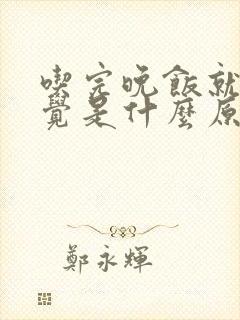 喫完晚飯就
覺是什麼原
鄭永輝